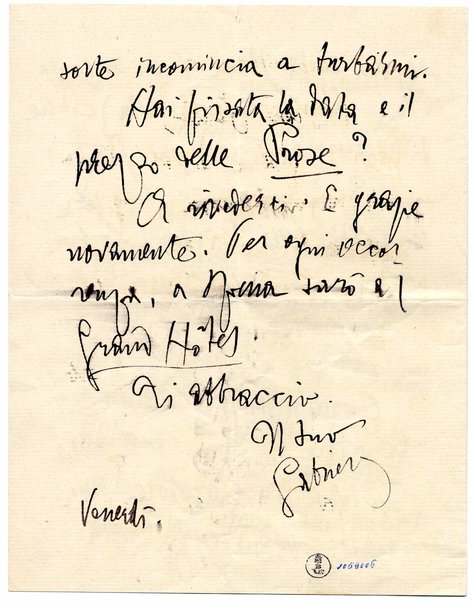 sorte incomincia a turbarmi.
Hai fissata la data e il
prezzo delle Prose?
A rivederci. E grazie
novamente. Per ogni occor
renza, a Roma sarò al
Grand Hôtel.
Ti abbraccio.
Il tuo
Gabriele
Venerdì.
1059006